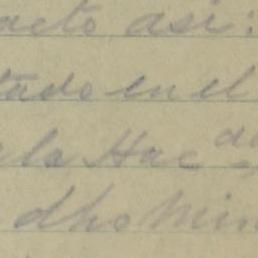 acto asi:
tado en el
la Hac da
dho Min